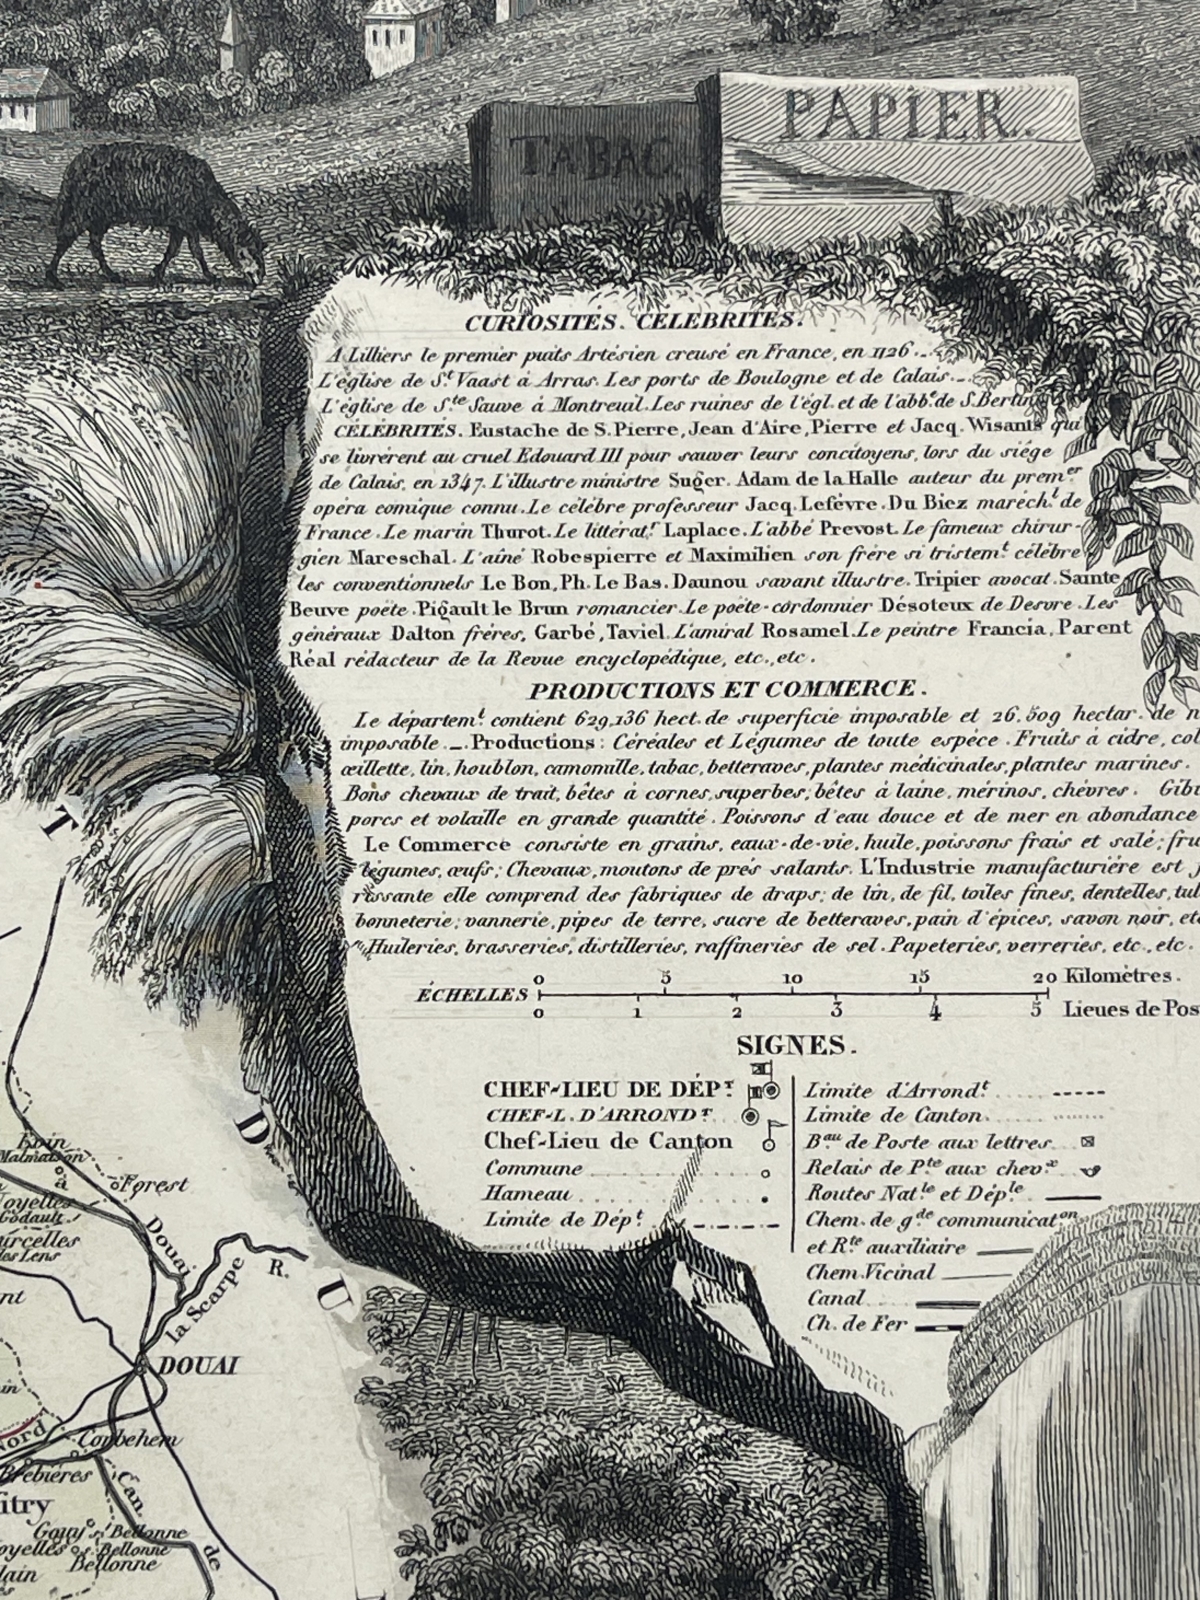 TABAC.
PAPIER.
CURIOSITÉS. CÉLÉBRITÉS.
A Lilliers le premier puits Artésien creusé en France, en 1126._
L'église de S.t Vaast à Arras. Les ports de Boulogne et de Calais._
L'église de S.te Sauve à Montreuil. Les ruines de l'égl. et de l'abb.e de S. Bertin
CÉLÉBRITÉS. Eustache de S. Pierre, Jean d'Aire, Pierre et Jacq. Wisants qui
se livrérent au cruel Edouard III pour sauver leurs concitoyens, lors du siége
de Calais, en 1347. L'illustre ministre Suger. Adam de la Halle auteur du prem.er
opéra comique connu. Le célébre professeur Jacq. Lefévre. Du Biez maréch.l de
France. Le marin Thurot. Le littérat.r Laplace. L'abbé Prevost. Le fameux chirur-
gien Mareschal. L'aîné Robespierre et Maximilien son frére si tristem.t célébre
les conventionnels Le Bon, Ph. Le Bas. Daunou savant illustre. Tripier avocat. Sainte
Beuve poéte. Pigault le Brun romancier. Le poéte-cordonnier Désoteux de Desvre. Les
généraux Dalton fréres, Garbé, Taviel. L'amiral Rosamel. Le peintre Francia, Parent
Réal rédacteur de la Revue encyclopédique, etc., etc.
PRODUCTIONS ET COMMERCE.
Le départem.t contient 629,136 hect. de superficie imposable et 26,509 hectar. de n
imposable._ Productions: Céréales et Légumes de toute espéce. Fruits à cidre, col
œillette, lin, houblon, camomille, tabac, betteraves, plantes médicinales, plantes marines.
Bons chevaux de trait, bêtes à cornes, superbes; bêtes à laine, mérinos, chévres. Gibi
porcs et volaille en grande quantité. Poissons d'eau douce et de mer en abondance
Le Commerce consiste en grains, eaux-de-vie, huile, poissons frais et salé; fru
légumes, œufs; Chevaux, moutons de prés salants. L'Industrie manufacturiére est f
rissante elle comprend des fabriques de draps; de lin, de fil, toiles fines, dentelles, tul
bonneterie; vannerie, pipes de terre, sucre de betteraves, pain d'épices, savon noir, etc
Huileries, brasseries, distilleries, raffineries de sel. Papeteries, verreries, etc., etc.
0 5 10 15 20 Kilométres.
ÉCHELLES
0 1 2 3 4 5 Lieues de Pos
SIGNES.
CHEF-LIEU DE DÉP.T
CHEF-L. D'ARROND.T
Chef-Lieu de Canton
Commune
Hameau
Limite de Dép.t
Limite d'Arrond.t
Limite de Canton
B.au de Poste aux lettres
Relais de P.te aux chev.x
Routes Nat.le et Dép.le
Chem. de g.de communicat.on
et R.te auxiliaire
Chem. Vicinal
Canal
Ch. de Fer
T
D
U
Evin
Malmaison
à
Forest
Noyelles
Godault
Courcelles
les Lens
Douai
la Scarpe
R.
DOUAI
Nord
Corbehem
Brebiéres
itry
Can
Gouy s. Bellonne
oyelles s. Bellonne
Bellonne
lain
de